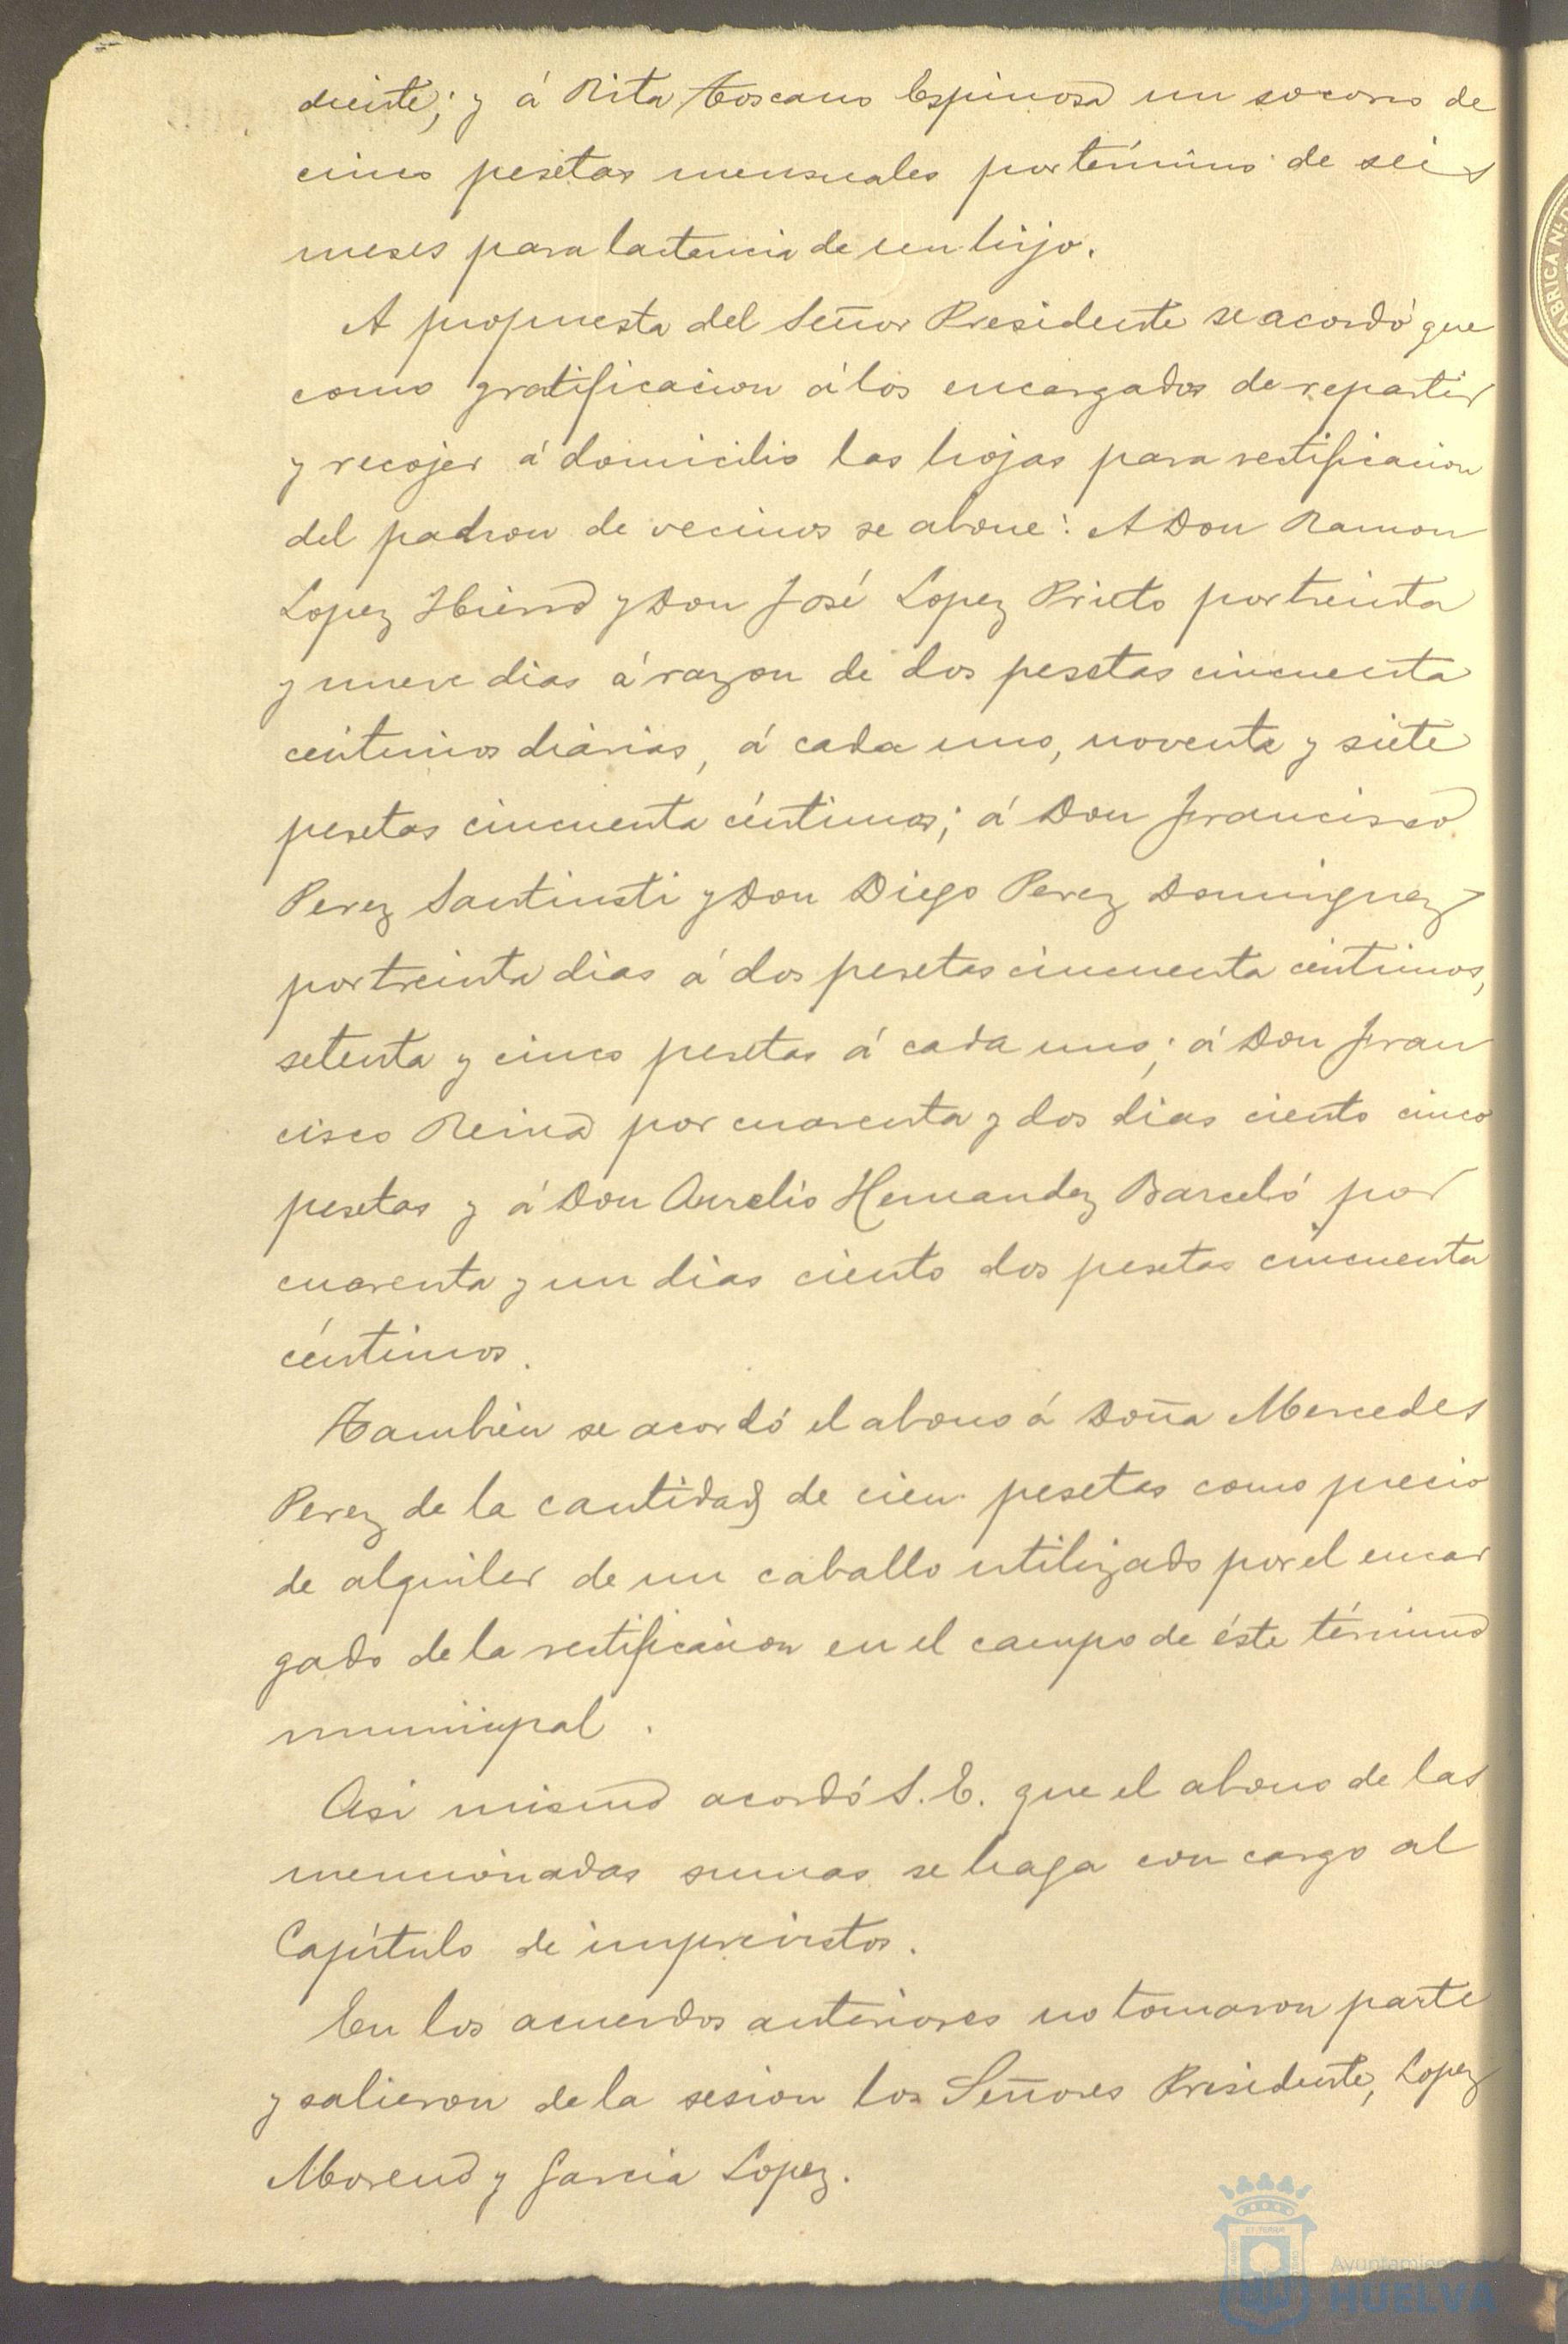 diente; y á Rita Toscano Espinosa un socorro de
cinco pesetas mensuales por término de seis
meses para lactancia de un hijo.
A propuesta del Señor Presidente se acordó que
como gratificacion á los encargados de repartir
y recojer á domicilio las hojas para rectificacion
del padron de vecinos se abone: A Don Ramon
Lopez Hierro y Don José Lopez Prieto por treinta
y nueve dias á razon de dos pesetas cincuenta
centimos diarias, á cada uno, noventa y siete
pesetas cincuenta céntimos; á Don Francisco
Perez Santinsti y Don Diego Perez Dominguez
por treinta dias á dos pesetas cincuenta centimos,
setenta y cinco pesetas á cada uno; á Don Fran
cisco Reina por cuarenta y dos dias ciento cinco
pesetas y á Don Aurelio Hernandez Barceló por
cuarenta y un dias ciento dos pesetas cincuenta
céntimos.
Tambien se acordó el abono á Doña Mercedes
Perez de la cantidad de cien pesetas como precio
de alquiler de un caballo utilizado por el encar
gado de la rectificacion en el campo de éste término
municipal.
Asi mismo acordó S. E. que el abono de las
mencionadas sumas se haga con cargo al
Capítulo de imprevistos.
En los acuerdos anteriores no tomaron parte
y salieron de la sesion los Señores Presidente, Lopez
Moreno y Garcia Lopez.
Ayuntamiento
HUELVA